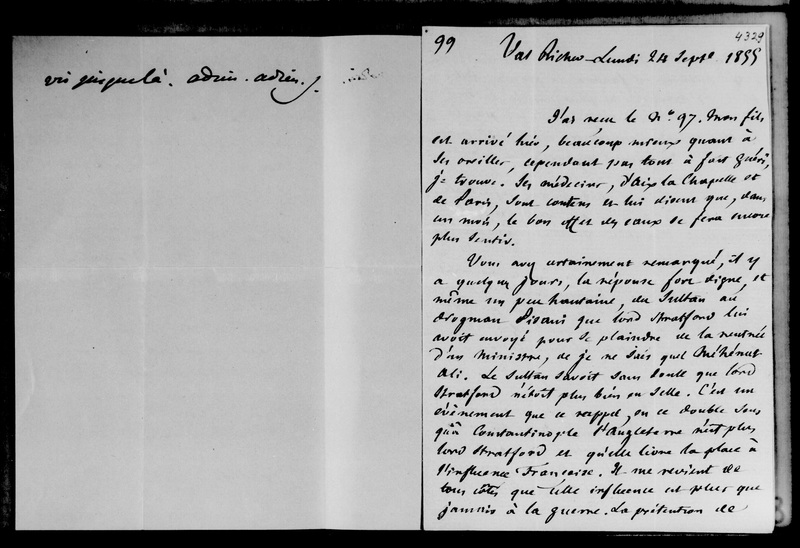 vis jusque là. adieu. adieu.
99
4329
Val Richer - Lundi 24 Septe 1855
J'ai reçu le No 97. Mon fils
est arrivé hier, beaucoup mieux quant à
ses oreilles, cependant pas tout à fait guéri,
je trouve. Ses médecins, d'Aix la Chapelle et
de Paris, sont contens et lui disent que, dans
un mois, le bon effet des eaux se fera encore
plus sentir.
Vous avez certainement remarqué, il y
a quelques jours, la réponse fort digne, et
même un peu hautaine, du Sultan au
drogman Pisani que lord Stratford lui
avoit envoyé pour se plaindre de la rentrée
d'un Ministre, de je ne sais quel Méhémet
Ali. Le Sultan savoit sans doute que lord
Stratford n'étoit plus bien en selle. C'est un
évènement que ce rappel, en ce double sens
qu'à Constantinople l'Angleterre n'est plus
lord Stratford et qu'elle livre la place à
l'influence Française. Il me revient de
tous côtés que cette influence est plus que
jamais à la guerre. La prétention de